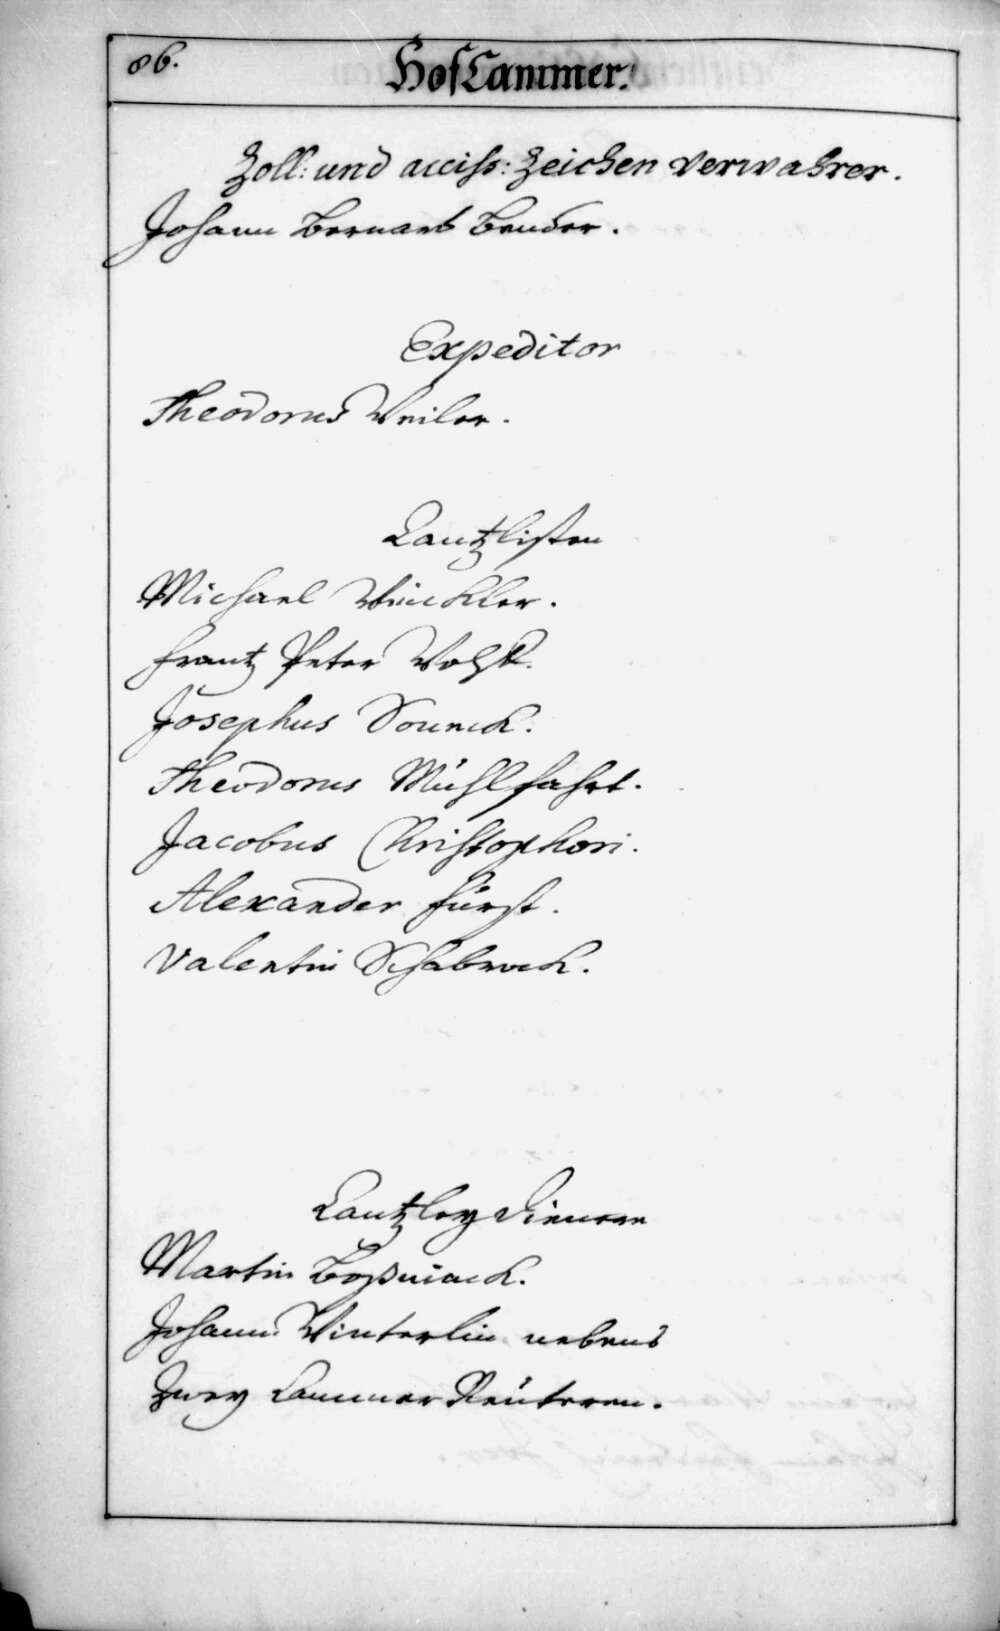 86.
HofCammer.
Zoll: und acciss: Zeichen Verwahrer.
Johann Bernard Bender.
Expeditor
Theodorus Weiler.
Cantzlisten
Michael Winckler.
Frantz Peter
Josephus
Theodorus Mühlfahrt.
Jacobus Christophori.
Alexander Fürst.
Valentin Schabrock.
Cantzley Dienere
Martin
Johann Winterlin nebens
Zwey Cammer Reüteren.